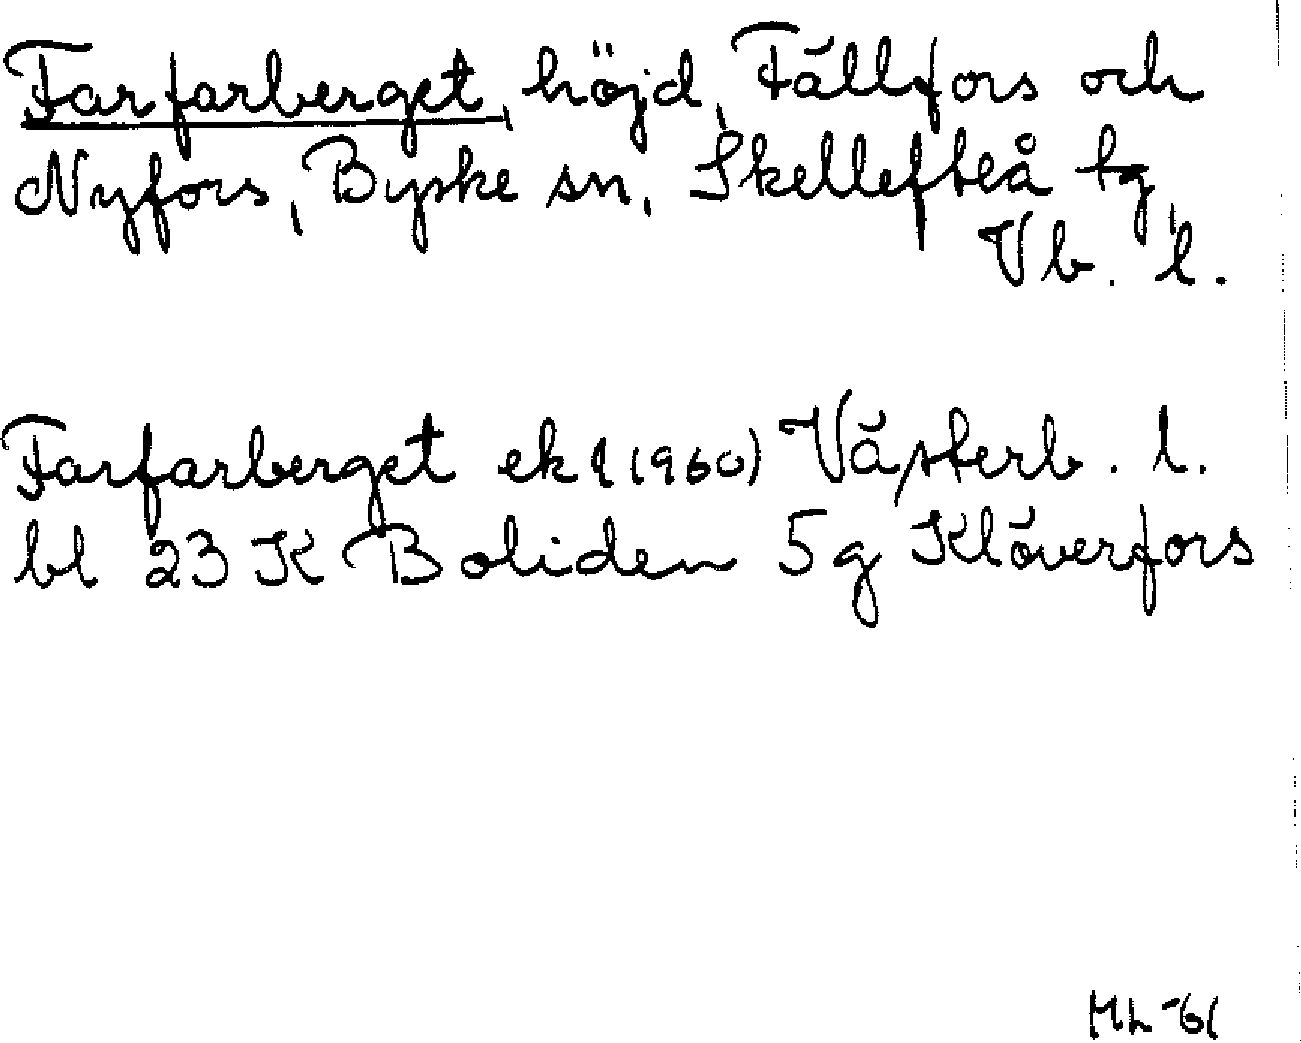 Farfarberget, höjd, Fällfors och
Nyfors, Byske sn, Skellefteå tg,
Vb. l.
Farfarberget ek (1960) Västerb. l.
bl 23 K Boliden 5g Klöverfors
ML -61